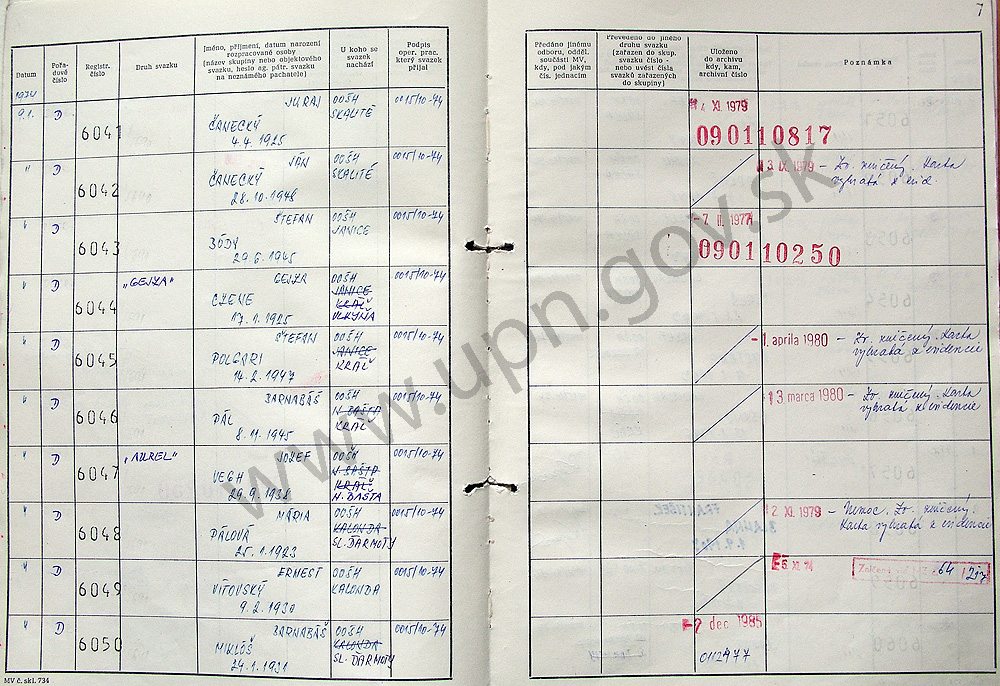 7
Datum
Pořa-
dové
číslo
Registr.
číslo
Druh svazku
Jméno, příjmení, datum narození
rozpracované osoby
(název skupiny nebo objektového
svazku, heslo ag. pátr. svazku
na neznámého pachatele)
U koho se
svazek
nachází
Podpis
oper. prac.
který svazek
přijal
Předáno jinému
odboru, odděl.
součásti MV,
kdy, pod jakým
čís. jednacím
Převedeno do jiného
druhu svazku
(zařazen do skup.
svazku číslo -
nebo uvést čísla
svazků zařazených
do skupiny)
Uloženo
do archivu
kdy, kam,
archivní číslo
Poznámka
1974
9.1. D 6041 JURAJ
ČANECKÝ
4.4.1925
OOŠH
SKALITÉ
0015/10-74
4 XI. 1979
090110817
" D 6042 JÁN
ČANECKÝ
28.10.1948
OOŠH
SKALITÉ
0015/10-74
13. IX. 1979 - Zv. zničený. Karta
vybratá z evid
" D 6043 ŠTEFAN
BÓDY
29.6.1945
OOŠH
JANICE
0015/10-74
-7. II. 1977
090110250
" D 6044 „GEJZA"
GEJZA
CZENE
17.1.1925
OOŠH
JANICE
KRÁĽ
VLKYŇA
0015/10-74
" D 6045 ŠTEFAN
POLGARI
14.2.1947
OOŠH
JANICE
KRÁĽ
0015/10-74
-1. apríla 1980 - Zv. zničený. Karta
vybratá z evidencie
" D 6046 BARNABÁŠ
PÁL
8.11.1945
OOŠH
N. BAŠTA
KRÁĽ
0015/10-74
13 marca 1980 - Zv. zničený. Karta
vybratá z evidencie
" D 6047 „AUREL"
JOZEF
VEGH
29.9.1938
OOŠH
N. BAŠTA
KRÁĽ
N. BAŠTA
0015/10-74
" D 6048 MÁRIA
PÁLOVÁ
25.1.1923
OOŠH
KALONDA
SL. ĎARMOTY
0015/10-74
12 XI. 1979 - Nemoc. Zv. zničený.
Karta vybratá z evidencie
" D 6049 ERNEST
VÍTOVSKÝ
9.2.1930
OOŠH
KALONDA
0015/10-74
64 / 217
" D 6050 BARNABÁŠ
MIKLÓŠ
24.1.1931
OOŠH
KALONDA
SL. ĎARMOTY
0015/10-74
-7 dec 1985
0112477
MV č. skl. 734
www.upn.gov.sk